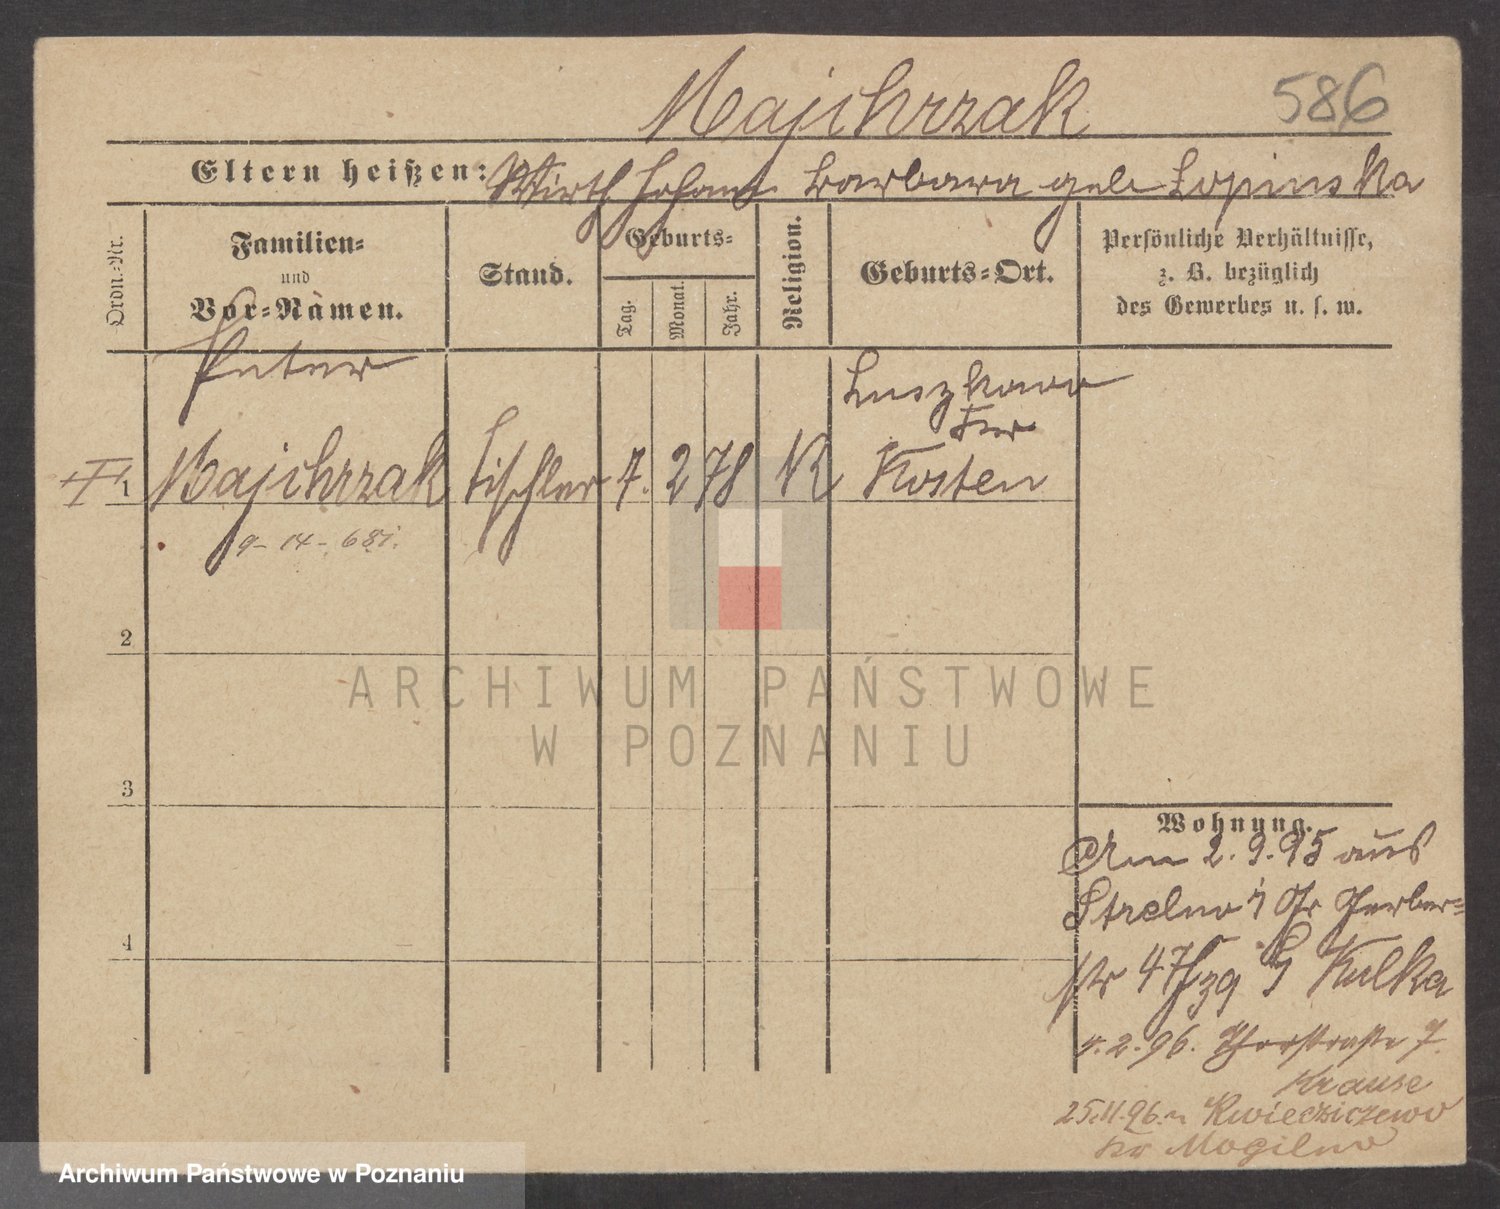 Majchrzak 586
Eltern heißen: Wirth Johann Barbara geb Lopinska
Ordn.-Nr.
Familien-
und
Vor-Namen.
Stand.
Geburts-
Tag.
Monat.
Jahr.
Religion.
Geburts-Ort.
Persönliche Verhältnisse,
z. B. bezüglich
des Gewerbes u. s. w.
Peter
Luszkowo
Krs
1 Majchrzak Tischler 7. 2 78 K Kosten
9-14-681.
2
3
4
Wohnung.
Am 2.9.95 aus
Strelno Gr Gerber-
str 47 bei Kulka
4.2.96. Thorstraße 7.
Krause
25.11.96. n Kwieciszewo
Kr Mogilno
ARCHIWUM PAŃSTWOWE
W POZNANIU
Archiwum Państwowe w Poznaniu